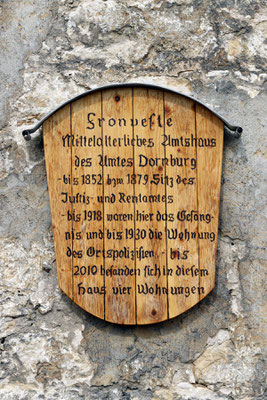 Fronveste
Mittelalterliches Amtshaus
des Amtes Dornburg
- bis 1852 bzw 1879 Sitz des
Justiz- und Rentamtes
- bis 1918 waren hier das Gefäng-
nis und bis 1930 die Wohnung
des Ortspolizisten - bis
2010 befanden sich in diesem
Haus vier Wohnungen